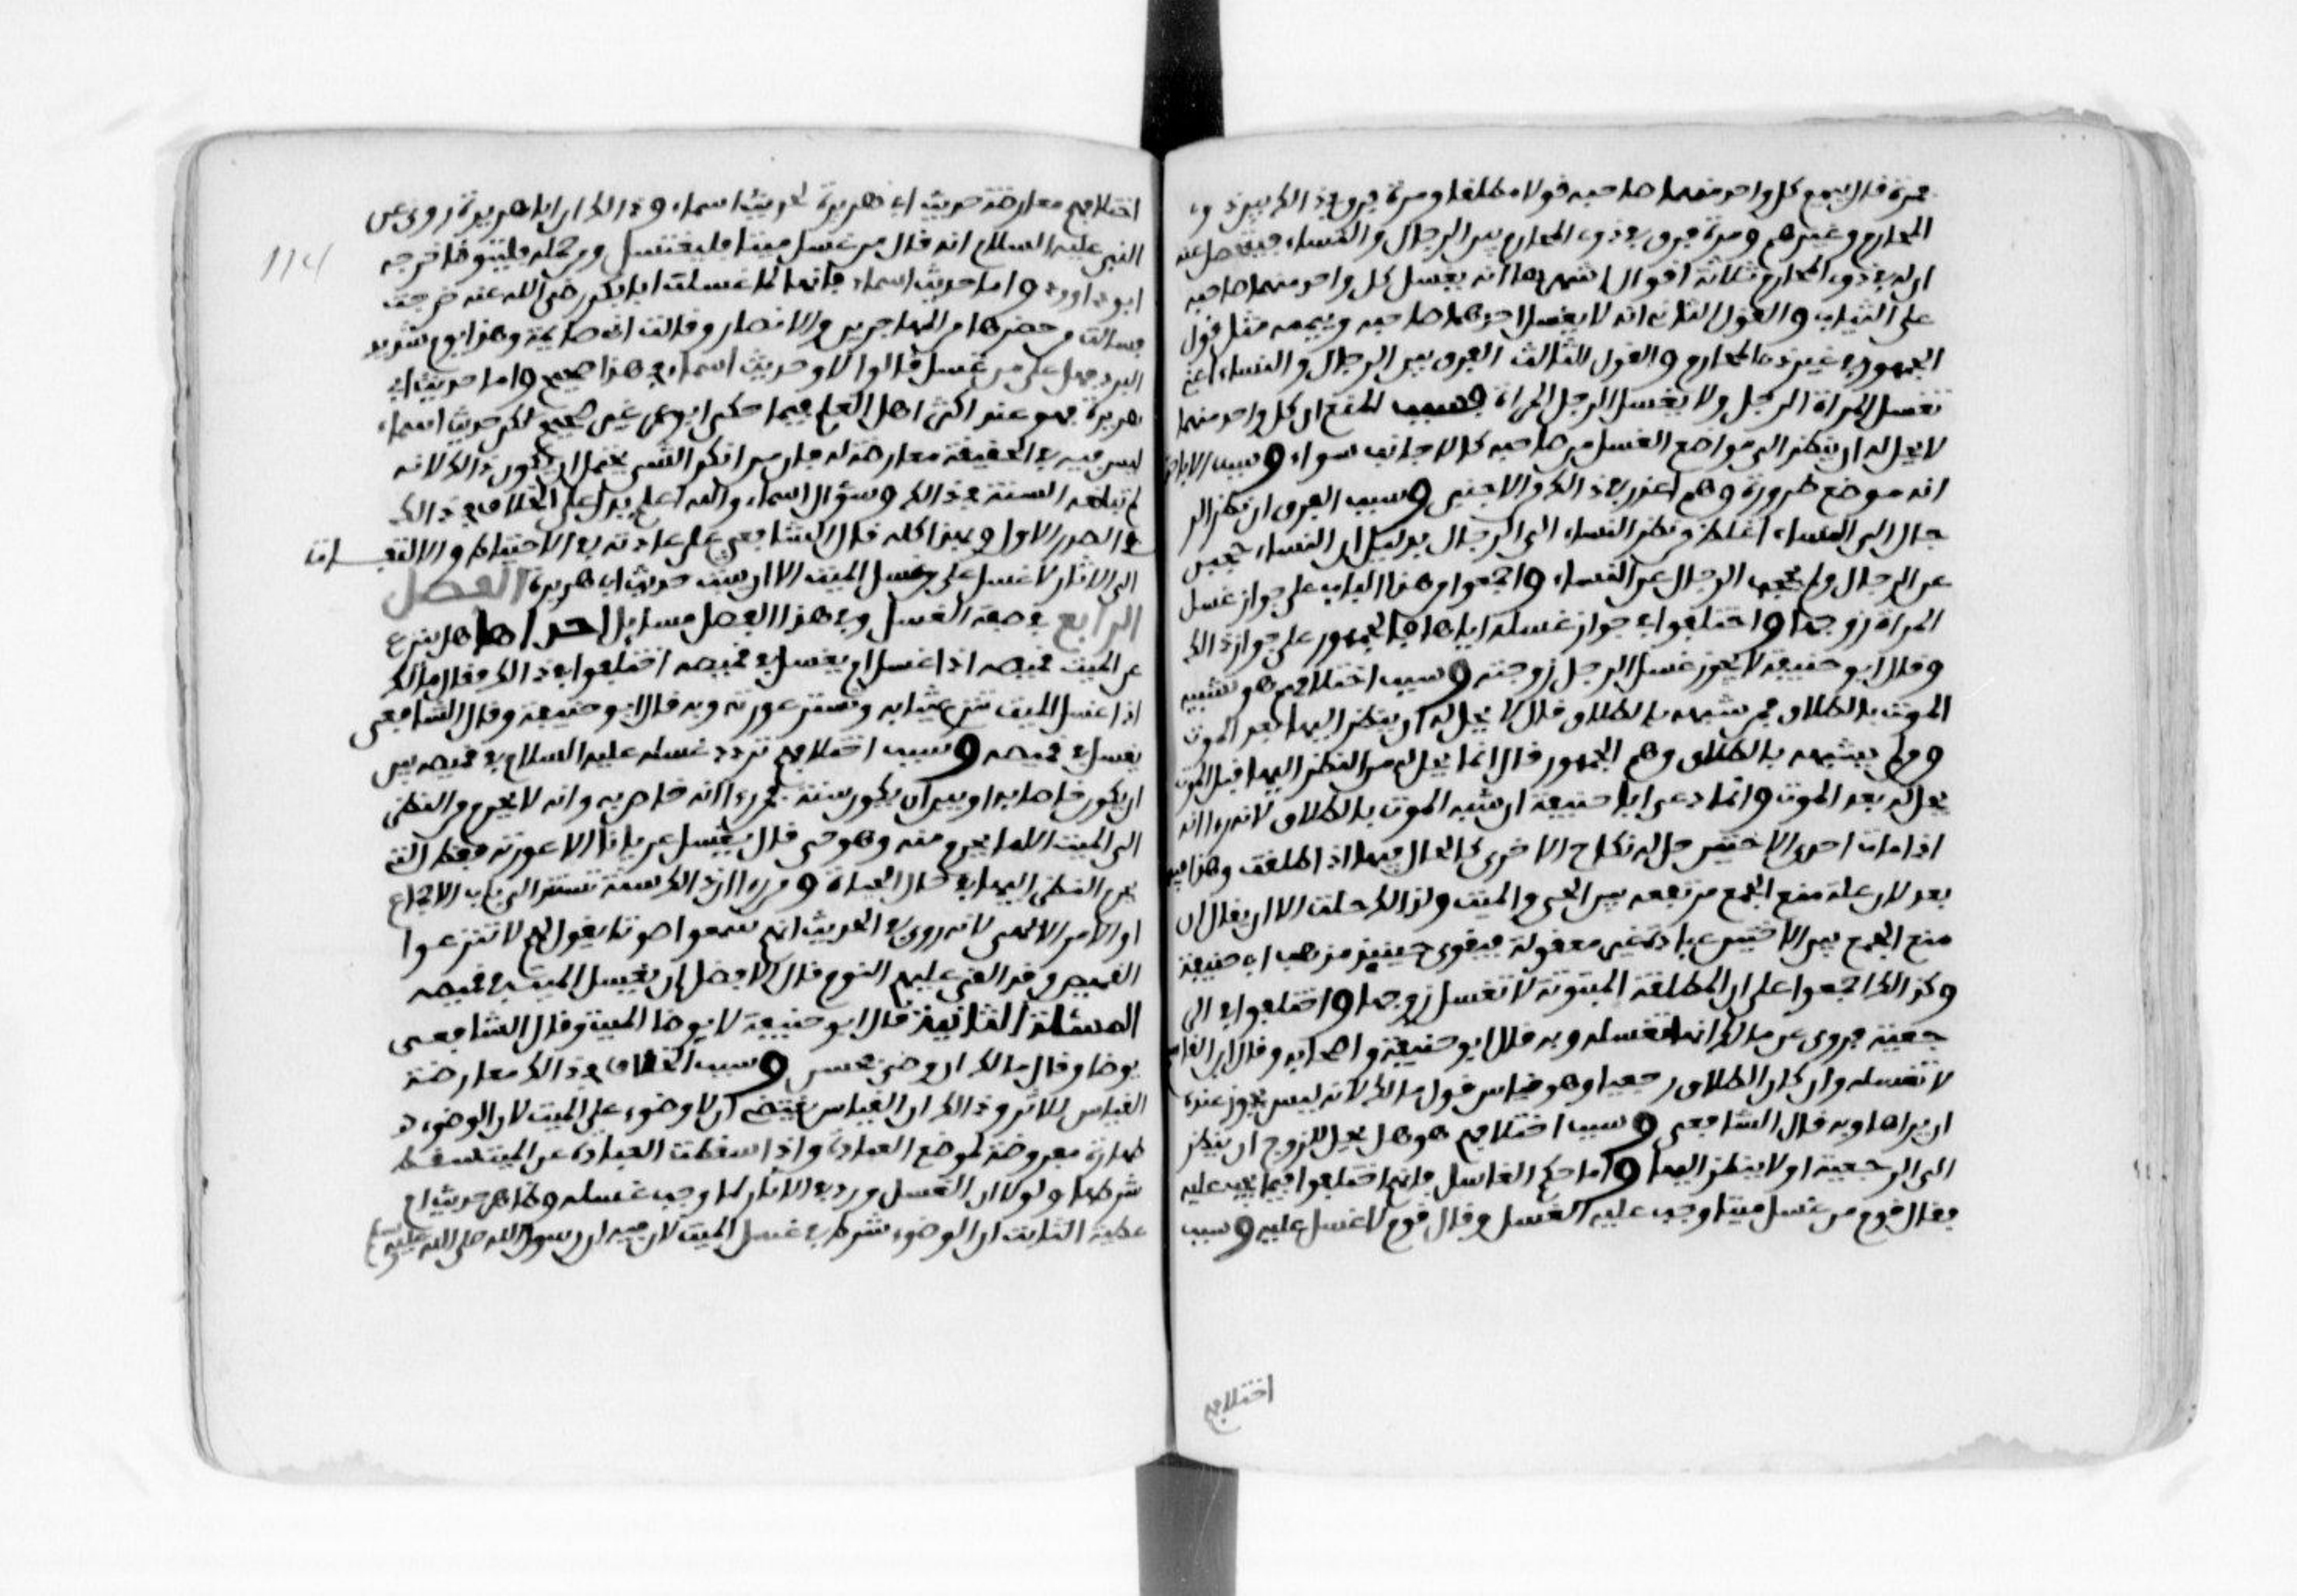 فمرة قال ييمم كل واحد منهما صاحبه قولا مطلقا ومرة فرق في ذالك بين ذوي
المحارم وغيرهم ومرة فرق في ذوي المحارم بين الرجال والنساء فيتحصل عنه
ان له في ذوي المحارم ثلاثة اقوال اشهرها انه يغسل كل واحد منهما صاحبه
على الثياب والقول الثاني انه لا يغسل احدهما صاحبه وييممه مثل قول
الجمهور في غير ذي المحارم والقول الثالث الفرق بين الرجال والنساء اعني
تغسل المراة الرجل ولا يغسل الرجل المراة وسبب المنع ان كل واحد منهما
لا يحل له ان ينظر الى مواضع الغسل من صاحبه كالاجانب سواء وسبب الاباحة
انه موضع ضرورة وهم اعذر في ذالك والاجنبي وسبب الفرق ان نظر الر
جال الى النساء اغلظ ونظر النساء الى الرجال بدليل ان النساء حجبن
عن الرجال ولم يحجب الرجال عن النساء واجمعوا وهذا الباب على جواز غسل
المراة زوجها واختلفوا في جواز غسله اياها فالجمهور على جواز ذالك
وقال ابو حنيفة لا يجوز غسل الرجل زوجته وسبب اختلافهم هو تشبيه
الموت بالطلاق فمن شبهه بالطلاق قال لا يحل له ان ينظر اليها بعد الموت
ومن لم يشبهه بالطلاق وهم الجمهور قال انما يحل له من النظر اليها قبل الموت
يحل له بعد الموت وانما دعى ابا حنيفة ان شبه الموت بالطلاق لانه راا انه
اذا ماتت احدى الاختين حل له نكاح الاخرى كالحال فيها اذا طلقت وهذا فيه
بعد لان علة منع الجمع مرتفعه بين الحي والميت ولذالك حلت الا ان يقال ان
منع الجمع بين الاختين عبادة غير معقولة فيقوى حينيذ مذهب ابي حنيفة
وكذالك اجمعوا على ان المطلقة المبتوتة لا تغسل زوجها واختلفوا في الر
جعية فروى عن مالك انها تغسله وبه قال ابو حنيفة واصحابه وقال ابن القاسم
لا تغسله وان كان الطلاق رجعيا وهو قياس قول مالك لانه ليس يجوز عنده
ان يراها وبه قال الشافعي وسبب اختلافهم هو هل يحل للزوج ان ينظر
الى الرجعية او لا ينظر اليها واما حكم الغاسل فانهم اختلفوا فيما يجب عليه
فقال قوم من غسل ميتا وجب عليه الغسل وقال قوم لا غسل عليه وسبب
اختلافهم
114
اختلافهم معارضة حديث ابي هريرة لحديث اسماء وذالك ان ابا هريرة روى عن
النبي عليه السلام انه قال من غسل ميتا فليغتسل ومن حمله فليتوضا خرجه
ابو داوود واما حديث اسماء فانها لما غسلت ابا بكر رضي الله عنه خرجت
فسالت من حضرها من المهاجرين والانصار وقالت اني صايمة وهذا يوم شديد
البرد فهل علي من غسل قالوا لا وحديث اسماء في هذا صحيح واما حديث ابي
هريرة فهو عند اكثر اهل العلم فيما حكى ابو عمر غير صحيح لكن حديث اسماء
ليس فيه في الحقيقة معارضة له فان من انكر الشي يحتمل ان يكون ذالك لانه
لم تبلغه السنة في ذالك وسؤال اسماء والله اعلم يدل على الخلاف في ذالك
في الصدر الاول ولهذا كله قال الشافعي على عادته في الاحتياط والالتفات
الى الاثار لا غسل على من غسل الميت الا ان يثبت حديث ابي هريرة الفصل
الرابع في صفة الغسل وفي هذا الفصل مسايل احداها هل ينزع
عن الميت قميصه اذا غسل ام يغسل في قميصه اختلفوا في ذالك فقال مالك
اذا غسل الميت تنزع ثيابه وتستر عورته وبه قال ابو حنيفة وقال الشافعي
يغسل في قميصه وسبب اختلافهم تردد غسله عليه السلام في قميصه بين
ان يكون خاصا به او بين ان يكون سنة فمن راا انه خاص به وانه لا يحرم من النظر
الى الميت الا ما يحرم منه وهو حي قال يغسل عريانا الا عورته فقط التي
يحرم النظر اليها في حال الحياة ومن راا ان ذالك سنة تستند الى باب الاجماع
او الامر الالهي لانه روي في الحديث انهم سمعوا صوتا يقول لهم لا تنزعوا
القميص وقد القي عليهم النوم قال الافضل ان يغسل الميت في قميصه
المسئلة الثانية قال ابو حنيفة لا يوضا الميت وقال الشافعي
يوضا وقال مالك ان وضي فحسن وسبب الخلاف في ذالك معارضة
القياس للاثر وذالك ان القياس يقتضي ان لا وضوء على الميت لان الوضوء
طهارة مفروضة لموضع العبادة واذا اسقطت العبادة عن الميت سقط
شرطها ولولا ان الغسل ورد في الاثار لما وجب غسله وظاهر حديث ام
عطية الثابت ان الوضوء شرط في غسل الميت لان فيه ان رسول الله صلى الله عليه وسلم